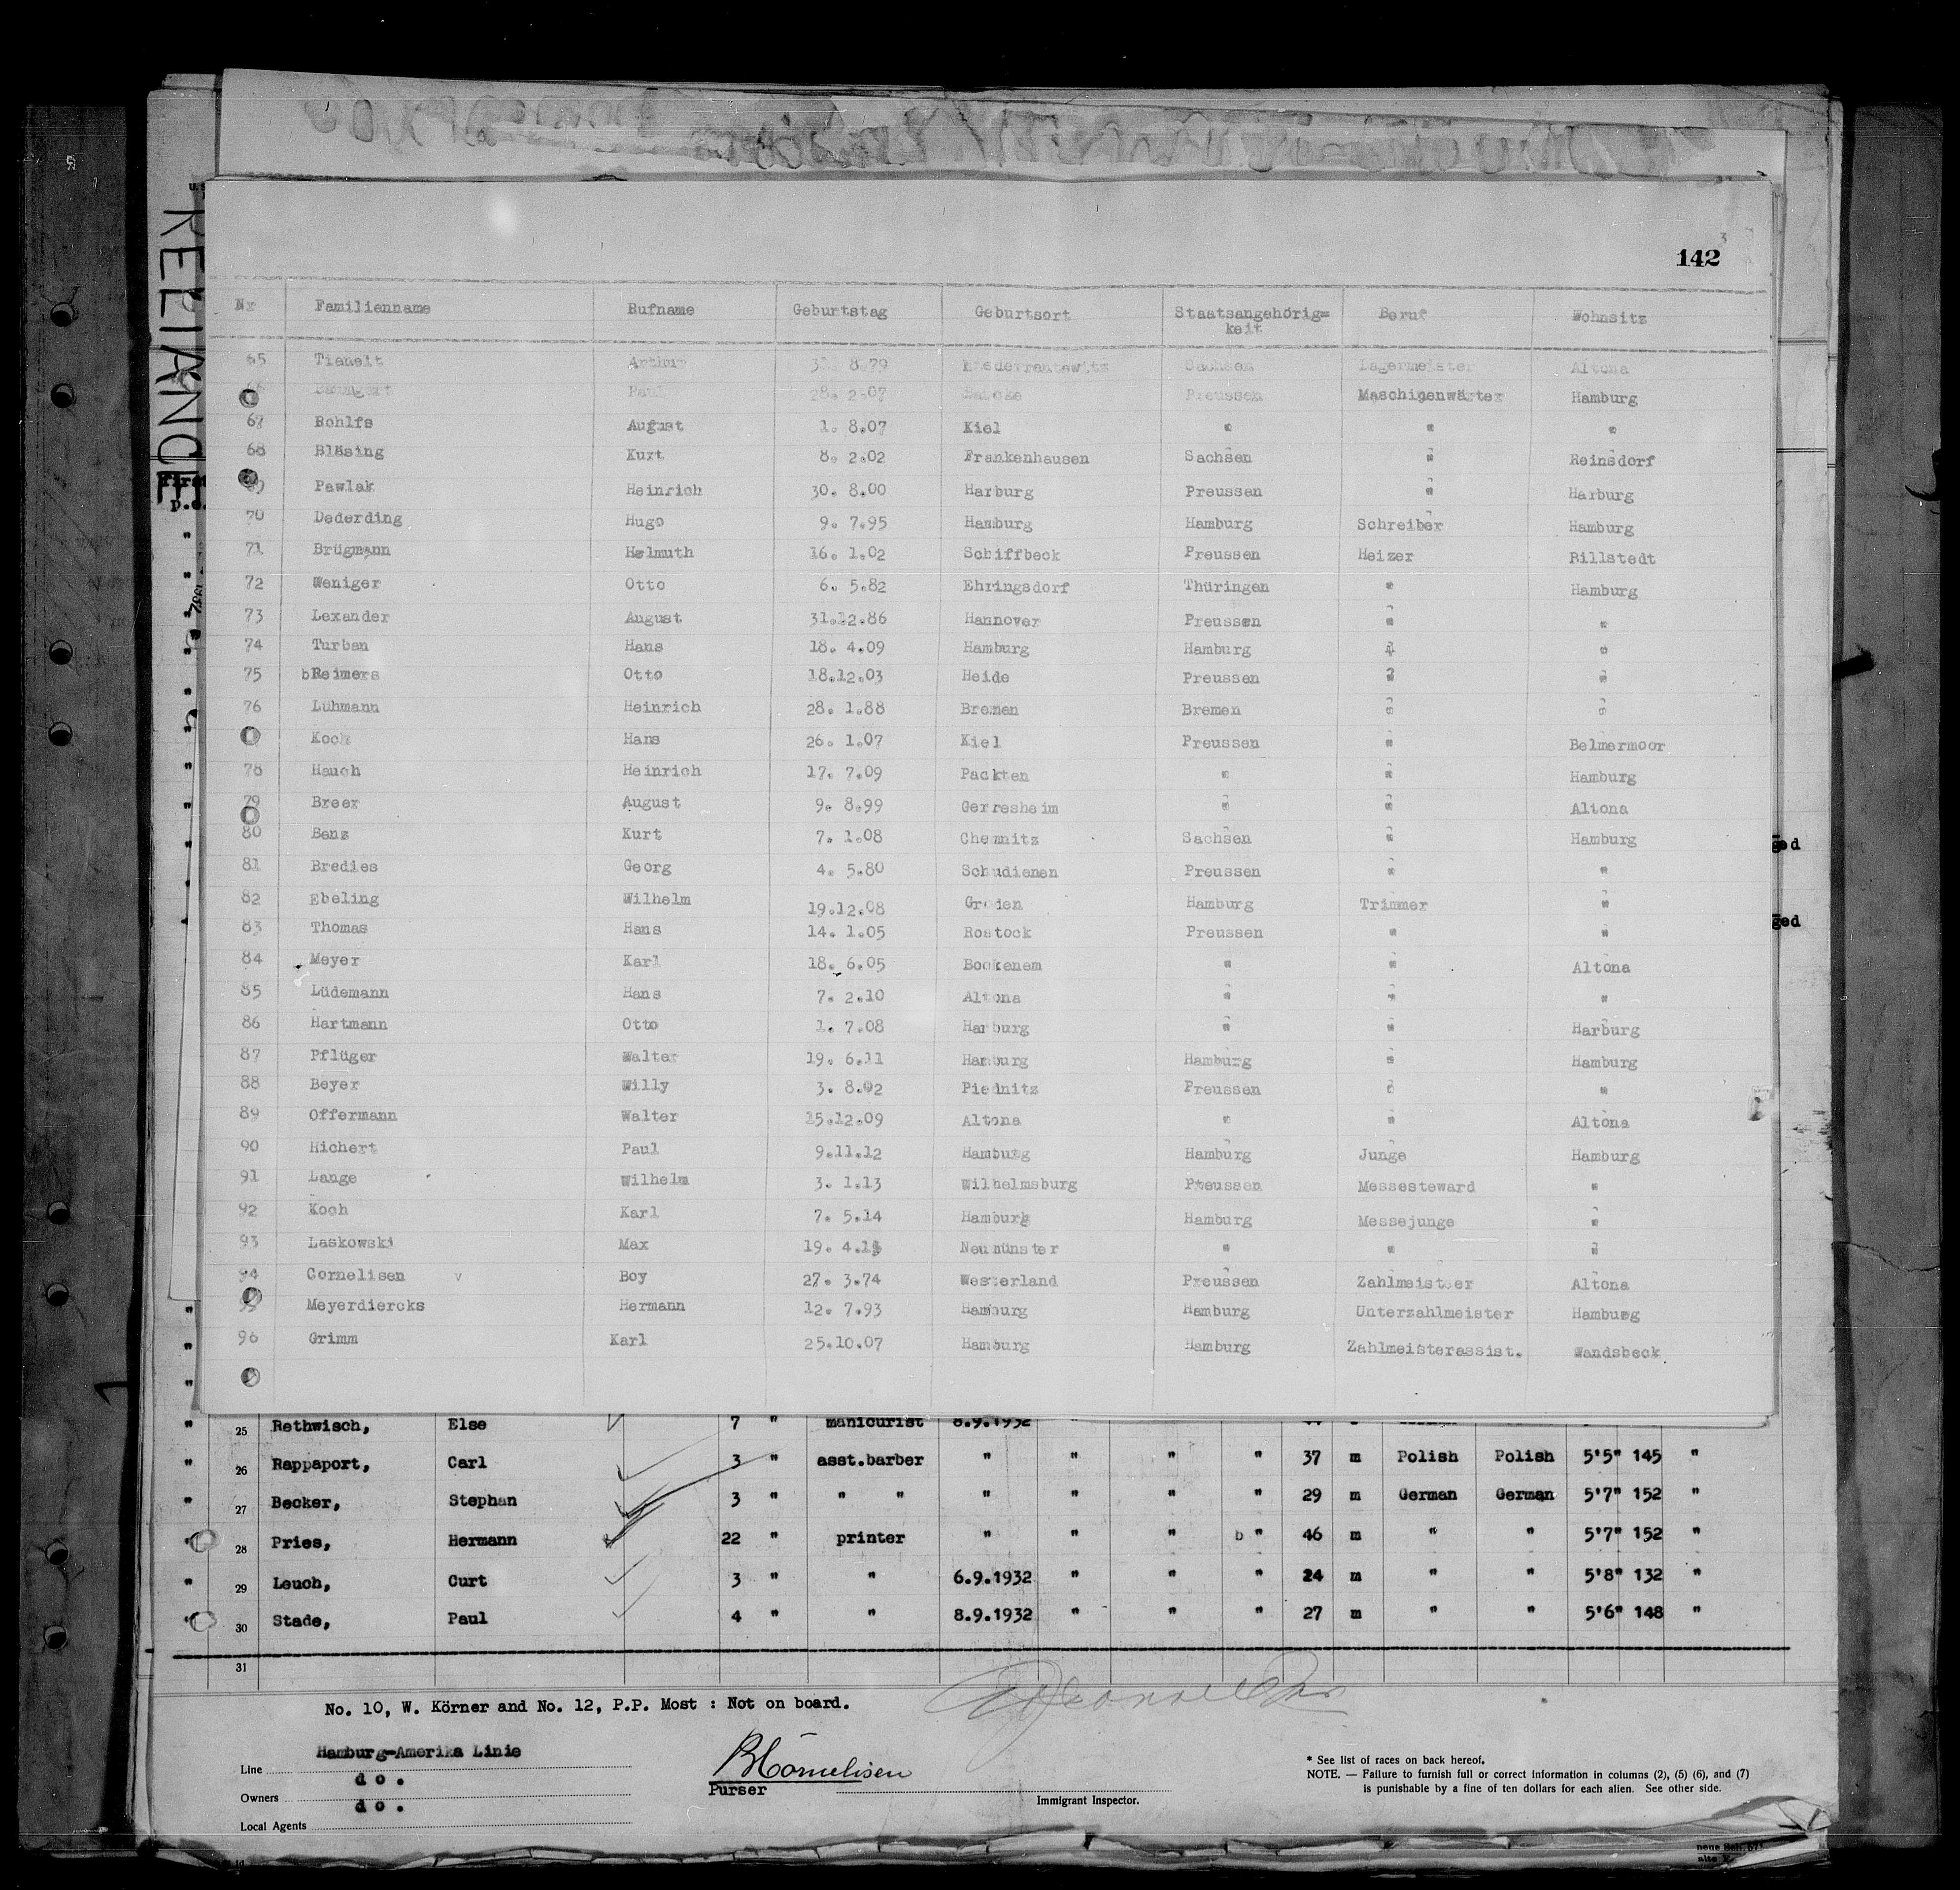 RELIANCE
142
Nr Familienname Rufname Geburtstag Geburtsort Staatsangehörig= Beruf Wohnsitz
keit
65 Arthur 8.79 Sachsen Lagermeister Altona
Paul 28. 2.07 Preussen Maschinenwärter Hamburg
67 Rohlfs August 1. 8.07 Kiel " " "
68 Bläsing Kurt 8. 2.02 Frankenhausen Sachsen " Reinsdorf
Pawlak Heinrich 30. 8.00 Harburg Preussen " Harburg
70 Dederding Hugo 9. 7.95 Hamburg Hamburg Schreiber Hamburg
71 Brügmann Helmuth 16. 1.02 Schiffbeck Preussen Heizer Billstedt
72 Weniger Otto 6. 5.82 Ehringsdorf Thüringen " Hamburg
73 Lexander August 31.12.86 Hannover Preussen " "
74 Turban Hans 18. 4.09 Hamburg Hamburg " "
75 Reimers Otto 18.12.03 Heide Preussen " "
76 Lühmann Heinrich 28. 1.88 Bremen Bremen " "
Koch Hans 26. 1.07 Kiel Preussen " Belmermoor
78 Hauch Heinrich 17. 7.09 Packten " " Hamburg
79 Breer August 9. 8.99 Gerresheim " " Altona
80 Benz Kurt 7. 1.08 Chemnitz Sachsen " Hamburg
81 Bredies Georg 4. 5.80 Schudienen Preussen " "
82 Ebeling Wilhelm 19.12.08 Hamburg Trimmer "
83 Thomas Hans 14. 1.05 Rostock Preussen " "
84 Meyer Karl 18. 6.05 Bockenem " " Altona
85 Lüdemann Hans 7. 2.10 Altona " " "
86 Hartmann Otto 1. 7.08 Harburg " " Harburg
87 Pflüger Walter 19. 6.11 Hamburg Hamburg " Hamburg
88 Beyer Willy 3. 8.92 Piednitz Preussen " "
89 Offermann Walter 15.12.09 Altona " " Altona
90 Hichert Paul 9.11.12 Hamburg Hamburg Junge Hamburg
91 Lange Wilhelm 3. 1.13 Wilhelmsburg Preussen Messesteward "
92 Koch Karl 7. 5.14 Hamburg Hamburg Messejunge "
93 Laskowski Max 19. 4.1 Neumünster " " "
94 Cornelisen v Boy 27. 3.74 Westerland Preussen Zahlmeister Altona
Meyerdiercks Hermann 12. 7.93 Hamburg Hamburg Unterzahlmeister Hamburg
96 Grimm Karl 25.10.07 Hamburg Hamburg Zahlmeisterassist. Wandsbeck
" 25 Rethwisch, Else 7 " manicurist 8.9.1932
" 26 Rappaport, Carl 3 " asst.barber " " " " 37 m Polish Polish 5'5" 145 "
" 27 Becker, Stephan 3 " " " " " " " 29 m German German 5'7" 152 "
" 28 Pries, Hermann 22 " printer " " " b " 46 m " " 5'7" 152 "
" 29 Leuch, Curt 3 " " 6.9.1932 " " " 24 m " " 5'8" 132 "
" 30 Stade, Paul 4 " " 8.9.1932 " " " 27 m " " 5'6" 148 "
31
No. 10, W. Körner and No. 12, P.P. Most : Not on board.
Line Hamburg-Amerika Linie
Owners do.
Local Agents do.
BCornelisen
Purser
Immigrant Inspector.
* See list of races on back hereof.
NOTE. — Failure to furnish full or correct information in columns (2), (5) (6), and (7)
is punishable by a fine of ten dollars for each alien. See other side.